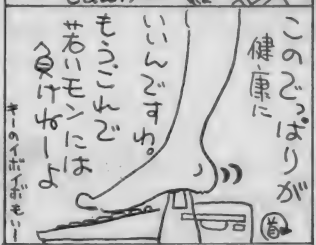 このでっぱりが
健康に
いいんですわ。
もうこれで
若いモンには
負けねーよ
キーのイボイボもいー!